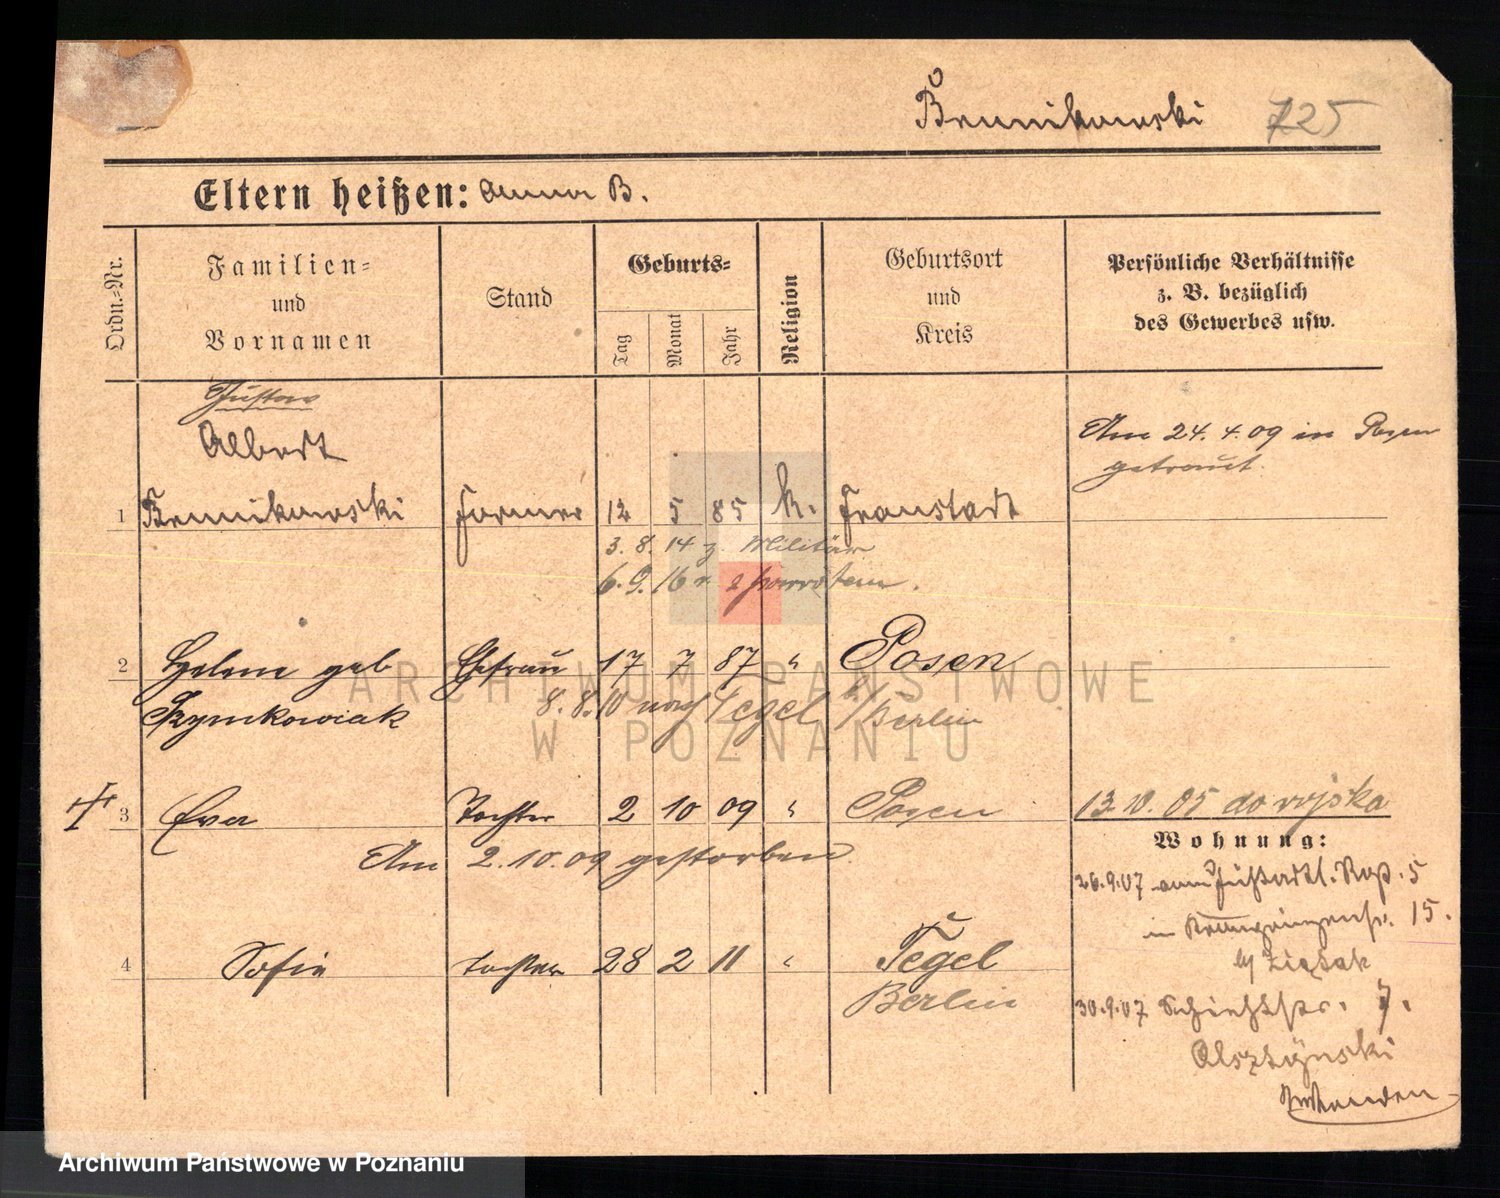 Brunikowski 725
Eltern heißen: Anna B.
Ordn.-Nr.
Familien-
und
Vornamen
Stand
Geburts-
Tag
Monat
Jahr
Religion
Geburtsort
und
Kreis
Persönliche Verhältnisse
z. B. bezüglich
des Gewerbes usw.
Gustav
Albert
Am 24. 4. 09 in Posen
getraut.
1 Brunikowski Former 12 5 85 k. Fraustadt
3. 8. 14 z. Militär
6. 9. 16 v.
2 Helene geb Ehefrau 17 7 87 " Posen
Szymkowiak 8. 8. 10 nach Tegel b/Berlin
3 Eva Tochter 2 10 09 " Posen
13 10. 05 do wojska
Am 2. 10. 09 gestorben.
Wohnung:
26. 9. 07 5
in 15.
4 Sofie Tochter 28 2 11 " Tegel
Berlin
30. 9. 07 7.
Olszynski
ARCHIWUM PAŃSTWOWE
W POZNANIU
Archiwum Państwowe w Poznaniu